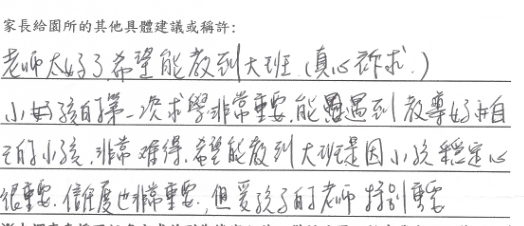 家長給園所的其他具體建議或稱許:
老師太好了,希望能教到大班(真心祈求.)
小孩的第一次求學非常重要,能遇到教導好自
己的小孩,非常難得,希望能教到大班是因小孩穩定心
很重要.信任度也非常重要,但愛孩子的老師特別重要